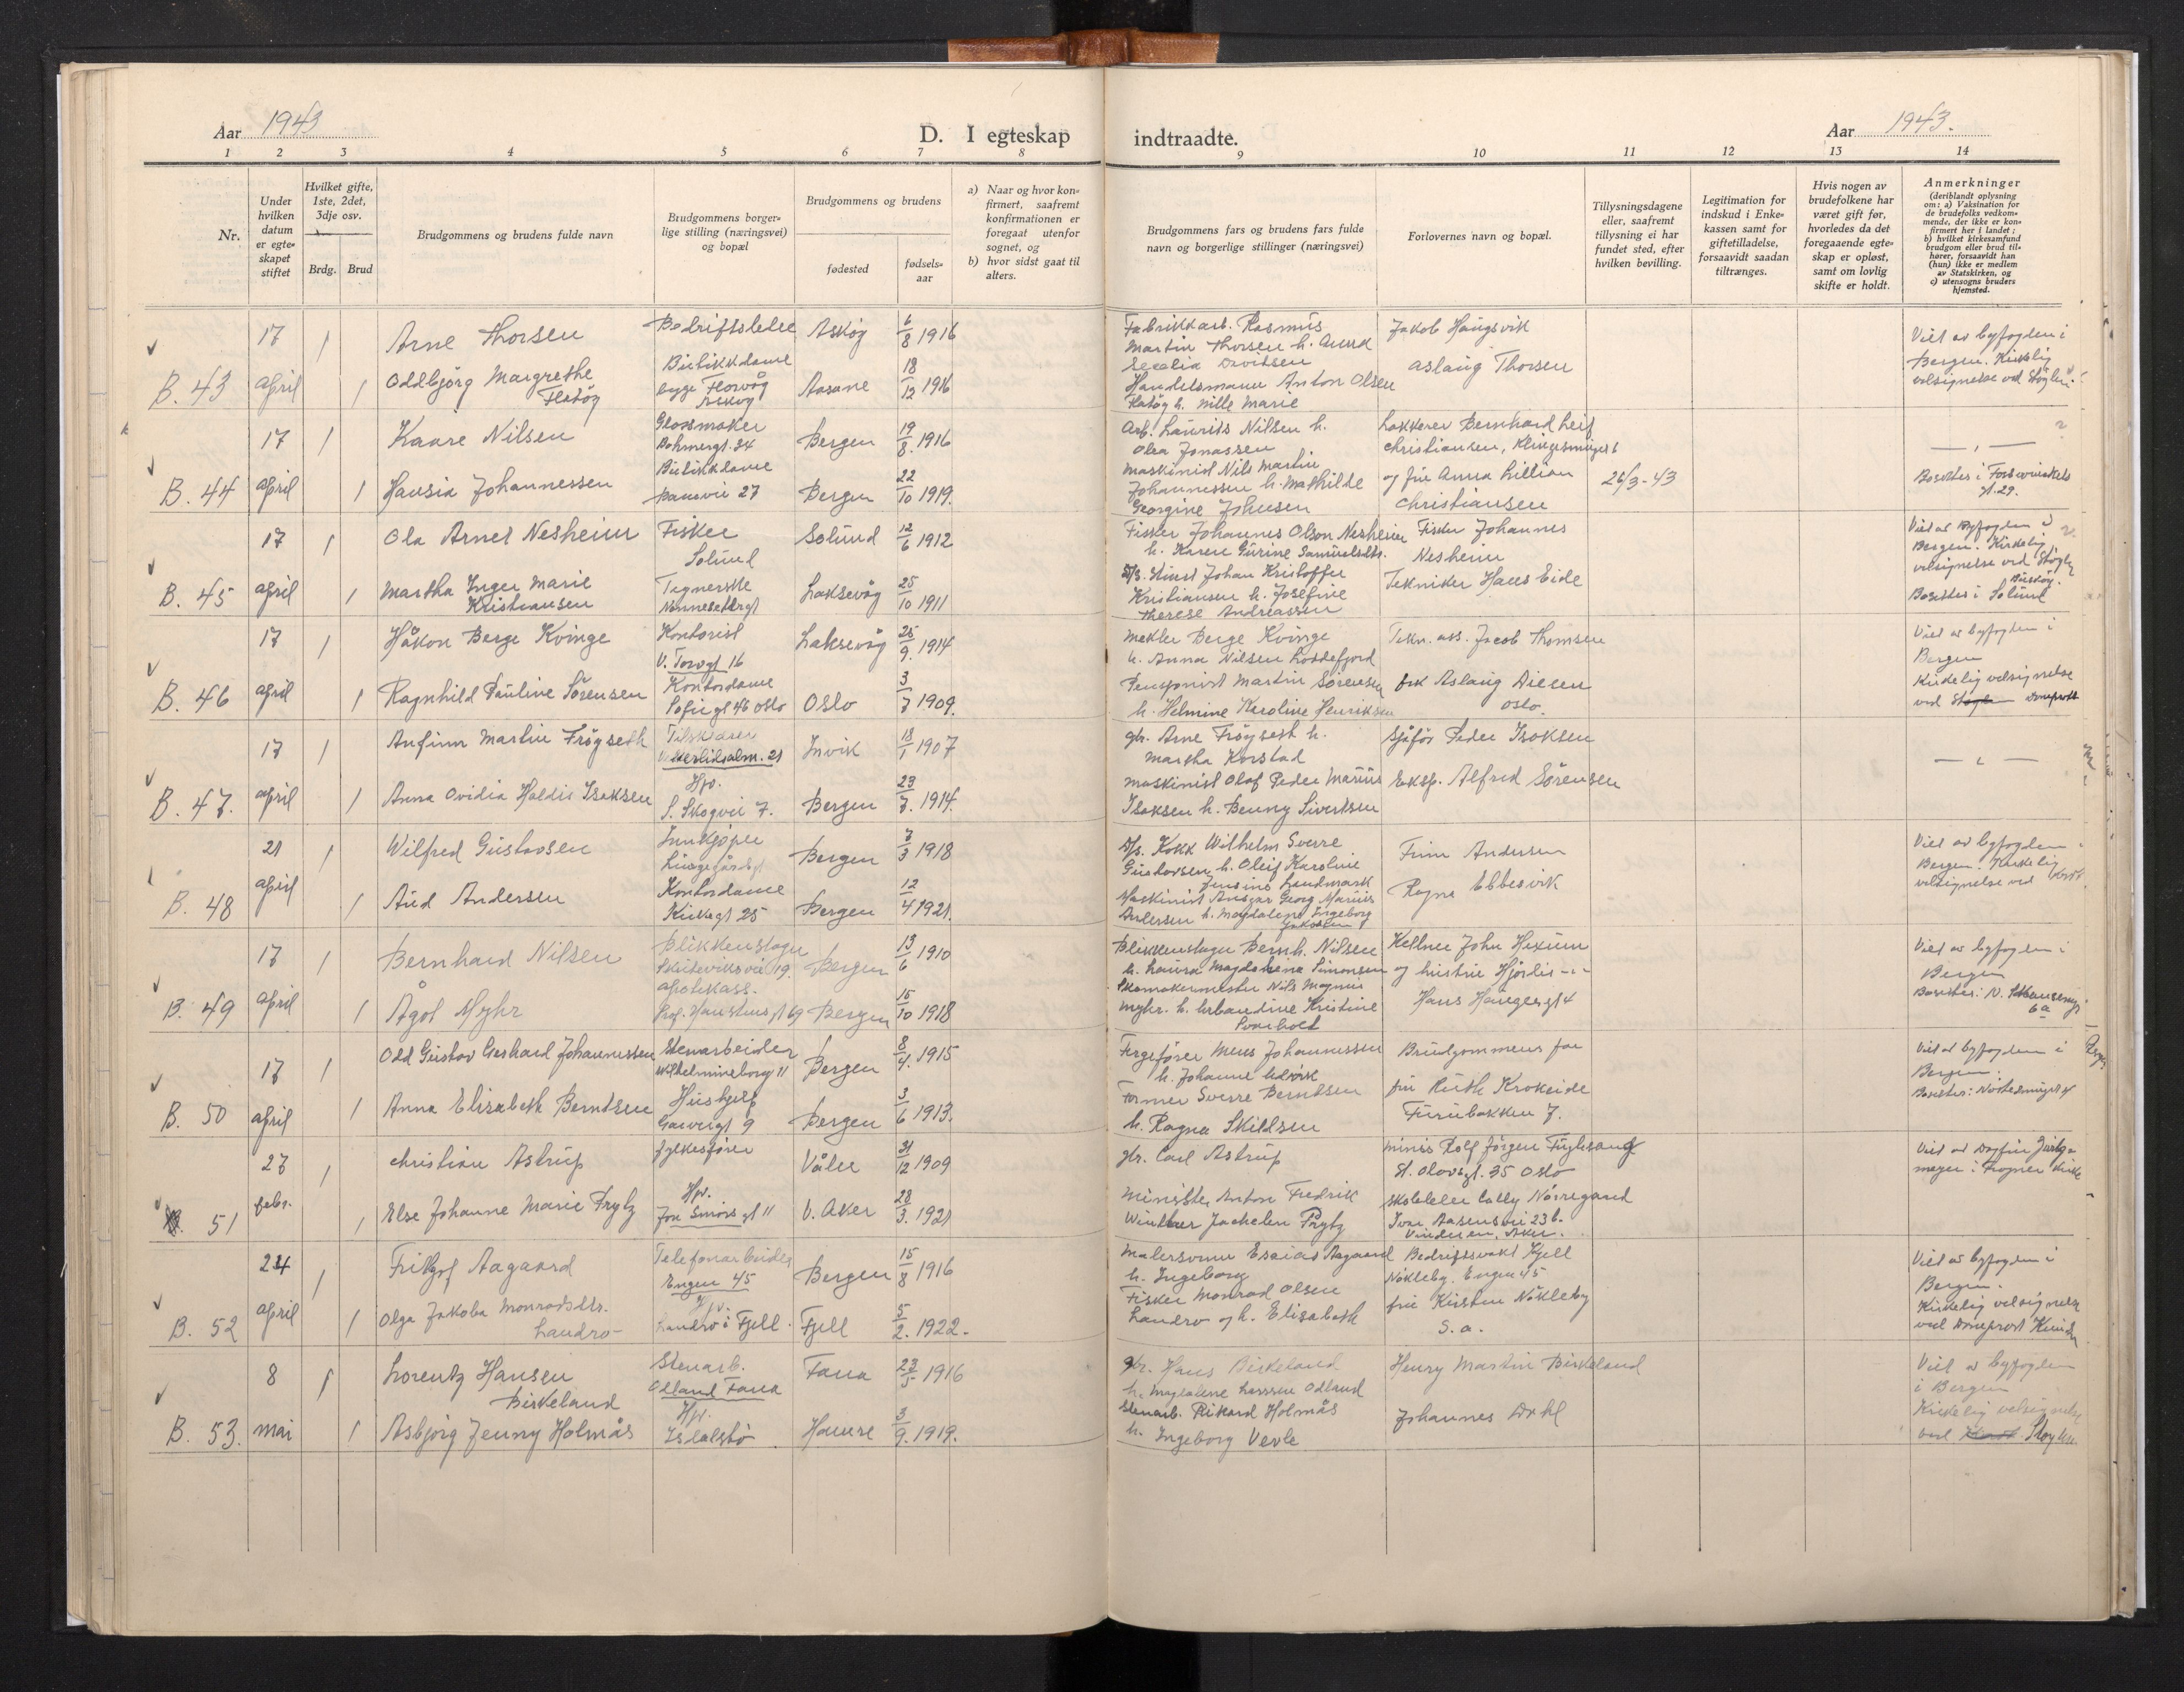 Aar 1943
D. I egteskap indtraadte.
Aar 1943.
1 2 3 4 5 6 7 8 9 10 11 12 13 14
Nr.
Under hvilken datum er egte-skapet stiftet
Hvilket gifte, 1ste, 2det, 3dje osv.
Brdg. Brud
Brudgommens og brudens fulde navn
Brudgommens borger-lige stilling (næringsvei) og bopæl
Brudgommens og brudens
fødested
fødsels-aar
a) Naar og hvor kon-firmert, saafremt konfirmationen er foregaat utenfor sognet, og
b) hvor sidst gaat til alters.
Brudgommens fars og brudens fars fulde navn og borgerlige stillinger (næringsvei)
Forlovernes navn og bopæl.
Tillysningsdagene eller, saafremt tillysning ei har fundet sted, efter hvilken bevilling.
Legitimation for indskud i Enke-kassen samt for giftetilladelse, forsaavidt saadan tiltrænges.
Hvis nogen av brudefolkene har været gift før, hvorledes da det foregaaende egte-skap er opløst, samt om lovlig skifte er holdt.
Anmerkninger
(deriblandt oplysning om: a) Vaksination for de brudefolks vedkom-mende, der ikke er kon-firmert her i landet; b) hvilket kirkesamfund brudgom eller brud til-hører, forsaavidt han (hun) ikke er medlem av Statskirken, og c) utensogns bruders hjemsted.
B. 43
17 april
1
Arne Thorsen
Bedriftsleder
Askøy
6/8 1916
1
Oddbjørg Margrethe
Flatøy
Butikkdame
begge Florvåg
Askøy
Aasane
18/12 1916
Fabrikkarb. Rasmus
Martin Thorsen h. Anna
Secelia Davidsen
Handelsmann Anton Olsen
Flatøy h. Nille Marie
Jakob Haugsvik
Aslaug Thorsen
Viet av byfogden i
Bergen. Kirkelig
velsignelse ved Støylen.
B. 44
17 april
1
Kaare Nilsen
Glassmaker
Bohmergt. 34
Bergen
19/8. 1916
1
Hansia Johannessen
Butikkdame
27
Bergen
22/10 1919.
Arb. Laurits Nilsen h.
Olea Jonassen
Maskinist Nils Martin
Johannessen h. Mathilde
Georgine Johnsen
Lakkerer Bernhard Leif
Christiansen,
og fru Anna Lillian
Christiansen
26/3-43
— „ —
Bosettes i
gt. 29.
B. 45
17 april
1
Ola Arnet Nesheim
Fisker
Solund
Solund
12/6 1912
1
Martha Inger Marie
Kristiansen
Tegnerske
Nonnesetergt
Laksevåg
25/10 1911
Fisker Johannes Olson Nesheim
h. Karen Gurine Samuelsdtr.
Johan Kristoffer
Kristiansen h. Josefine
Therese Andreassen
Fisker Johannes
Nesheim
Tekniker Hans Eide
Viet av byfogden i
Bergen. Kirkelig
velsignelse ved Støylen
Bosettes i Solund
B. 46
17 april
1
Håkon Berge Kvinge
Kontorist
V. Torvgt 16
Laksevåg
25/9. 1914
1
Ragnhild Pauline Sørensen
Kontordame
Sofiegt 46 Oslo
Oslo
3/7 1909.
Mekler Berge Kvinge
h. Anna Nilsen Loddefjord
Pensjonist Martin Sørensen
h. Helmine Karoline Henriksen
Tekn. ass. Jacob Thomsen
frk Aslaug Diesen
Oslo.
Viet av byfogden i
Bergen
Kirkelig velsignelse
ved Domprost
B. 47.
17 april
1
Anfinn Martin Frøyseth
Tilskjærer
21
Invik
18/1 1907
1
Anna Ovidia Haldis Isaksen
Hpv.
S. Skogvei 7.
Bergen
23/7. 1914.
gbr. Arne Frøyseth h.
Martha Korstad
Maskinist Olaf Peder Marius
Isaksen h. Benny Sivertsen
Sjåfør Peder Isaksen
Eksp. Alfred Sørensen
— „ —
B. 48
21 april
1
Wilfred Gustavsen
Innkjøper
Lungegårdsgt
Bergen
7/3 1918
1
Aud Andersen
Kontordame
Kirkegt 25
Bergen
12/4 1921.
Kokk Wilhelm Sverre
Gustavsen h. Oleif Karoline
Jensine Landmark
Maskinist Ansgar Georg Marius
Andersen h. Magdalene Ingeborg
Jakobsen
Finn Andersen
Ragna Ebbesvik
Viet av byfogden i
Bergen. Kirkelig
velsignelse ved
B. 49
17 april
1
Bernhard Nilsen
Blikkenslager
Skuteviksvei 19.
Bergen
13/6 1910
1
Ågot Myhr
Apotekass.
Prof. Hansteens gt 69
Bergen
15/10 1918
Blikkenslager Bernh. Nilsen
h. Laura Magdalena Simonsen
Skomakermester Nils Magnus
Myhr. h. Urbandine Kristine
Svarholt
Kellner John Hexum
og hustru Hjørdis -„-
Hans Haugesgt 4
Viet av byfogden i
Bergen
6a
B. 50
17 april
1
Odd Gustav Gerhard Johannessen
Stenarbeider
Wilhelmineborg 11
Bergen
8/4. 1915
1
Anna Elisabeth Berntsen
Hushjelp
9
Bergen
3/6 1913.
Fergefører Mens Johannessen
h. Johanne Udvik
Former Sverre Berntsen
h. Ragna Skildsen
Brudgommens far
fru Ruth Krokeide
Furubakken 7.
Viet av byfogden i
Bergen.
B. 51
27 febr.
1
Christian Astrup
Fylkesfører
Våler
31/12 1909
1
Else Johanne Marie Frytz
Hpv.
Jon Smørs gt 11
V. Aker
28/3. 1921
gbr. Carl Astrup
Minister Anton Fredrik
Winther Jachelen Prytz
Minis Rolf Jørgen Fuglesang
St. Olavsgt. 35 Oslo
skoleleder Cally Nørregaard
Ivar Aasensvei 23 b.
Vinderen, Aker.
Viet av Dagfin
i Frogner kirke
B. 52
24 april
1
Fritjof Aagaard
Telefonarbeider
Engen 45
Bergen
15/8 1916
1
Olga Jakoba Monradsdtr.
Landro
Hpv.
Landro i Fjell.
Fjell
5/2. 1922.
Malersvenn Esaias Aagaard
h. Ingeborg
Fisker Monrad Olsen
Landro og h. Elisabeth
Bedriftsvakt Kjell
Nøkleby. Engen 45
fru Kirsten Nøkleby
s. a.
Viet av byfogden i
Bergen.
Kirkelig velsignelse
ved Domprost
B. 53.
8 mai
1
Lorentz Hansen
Birkeland
Stenarb.
Odland Fana
Fana
23/5 1916
1
Asbjørg Jenny Holmås
Hpv.
Isdalstø
Hamre
3/9. 1919.
gbr. Hans Birkeland
h. Magdalene Larssen Odland
Stenarb. Rikard Holmås
h. Ingeborg Vevle
Henry Martin Birkeland
Johannes Dahl
Viet av byfogden
i Bergen
Kirkelig velsignelse
ved Støylen.